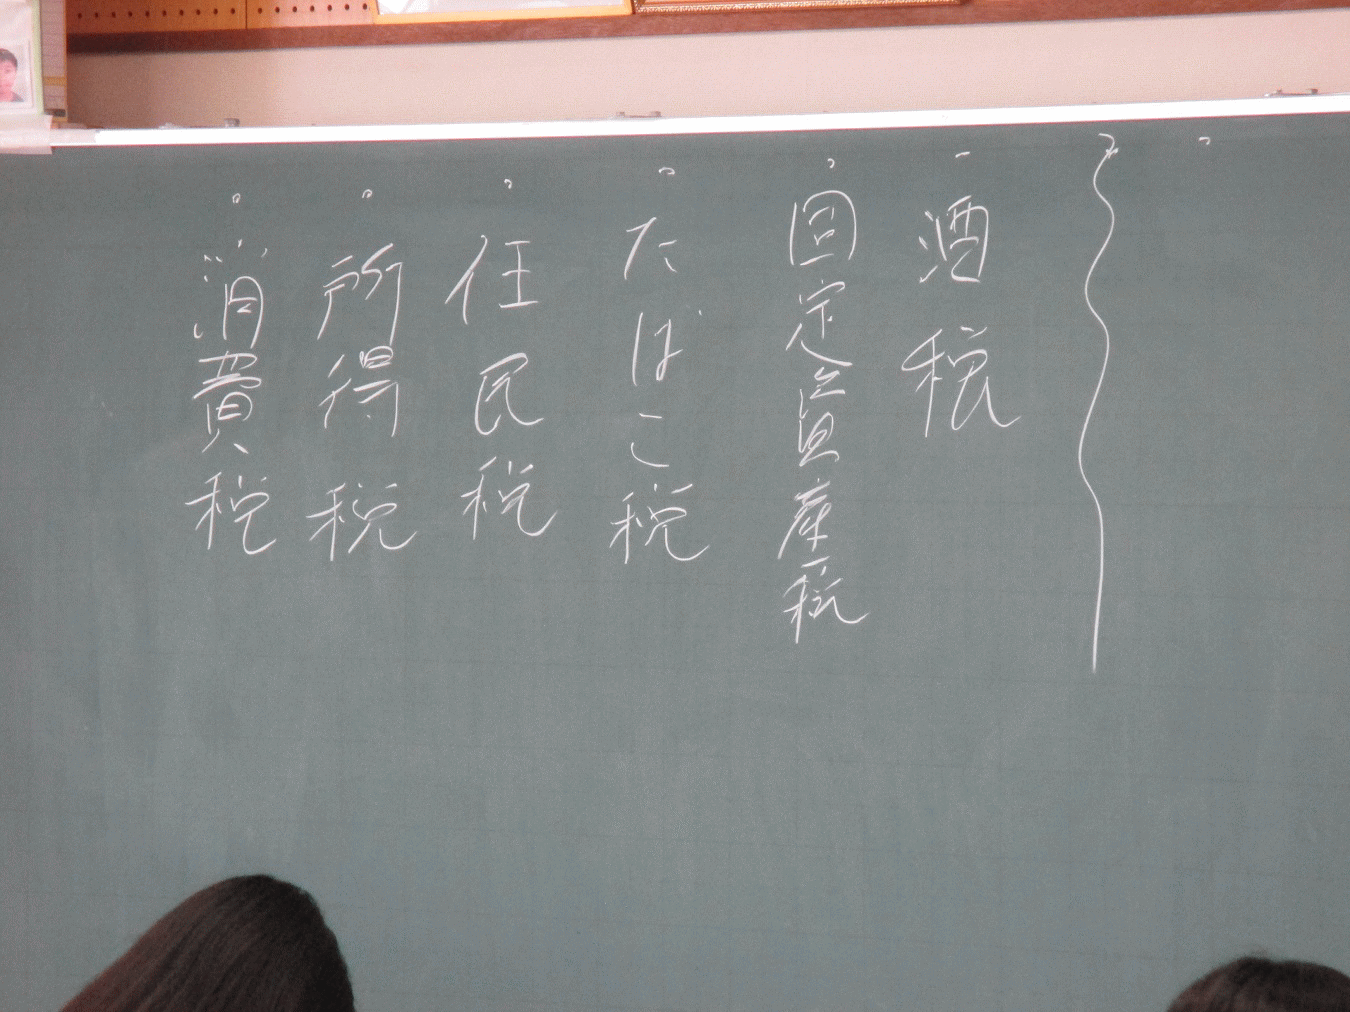 ・酒税
・固定資産税
・たばこ税
・住民税
・所得税
・消費税